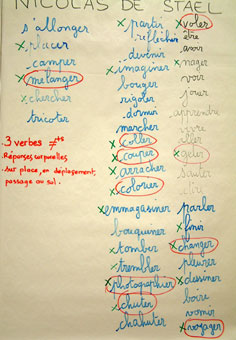 NICOLAS DE STAEL
s'allonger
x placer
camper
x mélanger
x chercher
tricoter
3 verbes ≠ts
. Réponses corporelles
. sur place, en déplacement,
passage au sol.
x partir
réfléchir
devenir
x imaginer
bouger
rigoler
dormir
marcher
x coller
x couper
x arracher
x colorier
x emmagasiner
bouquiner
x tomber
x trembler
x photographier
x chuter
chahuter
x voler
être
avoir
x nager
voir
jouer
apprendre
vivre
aller
x geler
sauter
lire
parler
x finir
x changer
pleurer
x dessiner
boire
vomir
x voyager